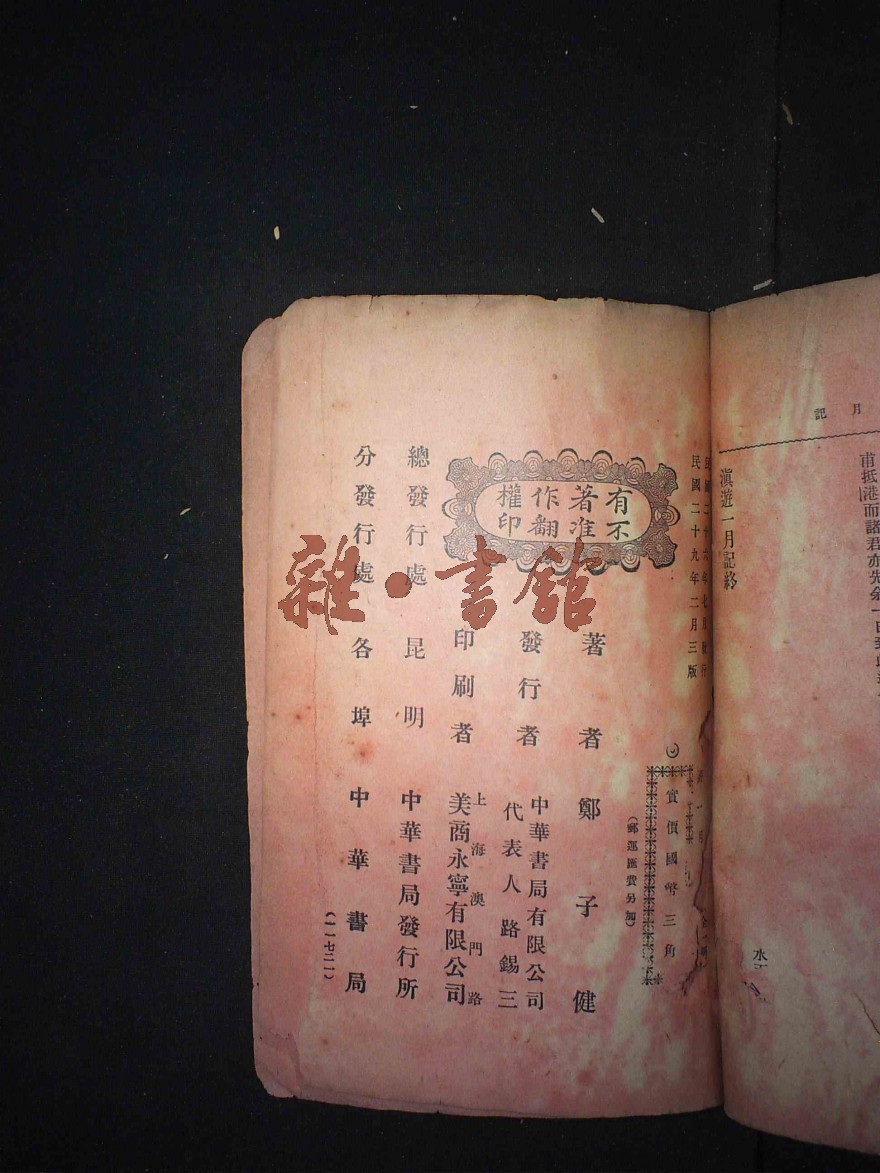 月記
甫抵港而諸君亦先余一日到
滇遊一月記終
民國二十六年七月發行
民國二十九年二月三版
實價國幣三角
(郵運匯費另加)
有著作權
不准翻印
著者 鄭子健
發行者 中華書局有限公司
代表人 路錫三
上海澳門路
印刷者 美商永寧有限公司
總發行處 昆明 中華書局發行所
分發行處 各埠 中華書局
(一一七二一)
雜·書館